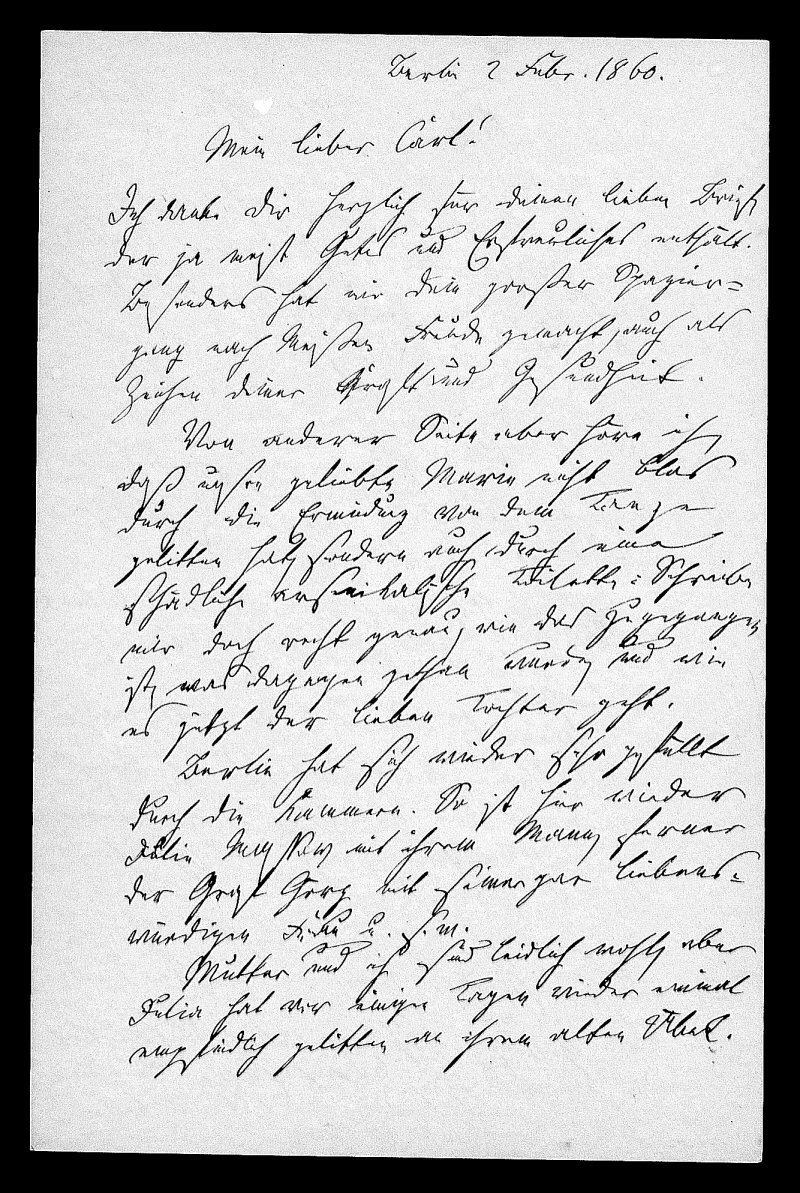 Berlin 2 Febr. 1860.
Mein lieber Carl!
Ich danke dir herzlich für deinen lieben Brief,
der ja meist Gutes und Erfreuliches enthält.
Besonders hat mir dein großer Spazier=
gang nach Meißen Freude gemacht, auch als
Zeichen deiner Kraft und Gesundheit.
Von anderer Seite aber höre ich,
daß unsre geliebte Marie nicht blos
durch die Ermüdung von dem Tanze
gelitten hat, sondern auch durch eine
schädliche arsenikalische Toilette: Schreibe
mir doch recht genau, wie das zugegangen
ist, was dagegen gethan wurde, und wie
es jetzt der lieben Tochter geht.
Berlin hat sich wieder sehr gefüllt
durch die Kammern. So ist hier wieder
mit ihrem Mann, ferner
der Graf mit seiner gar liebens=
würdigen Frau u. s. w.
Mutter und ich sind leidlich wohl, aber
Julia hat vor einigen Tagen wieder einmal
empfindlich gelitten an ihrem alten Übel.